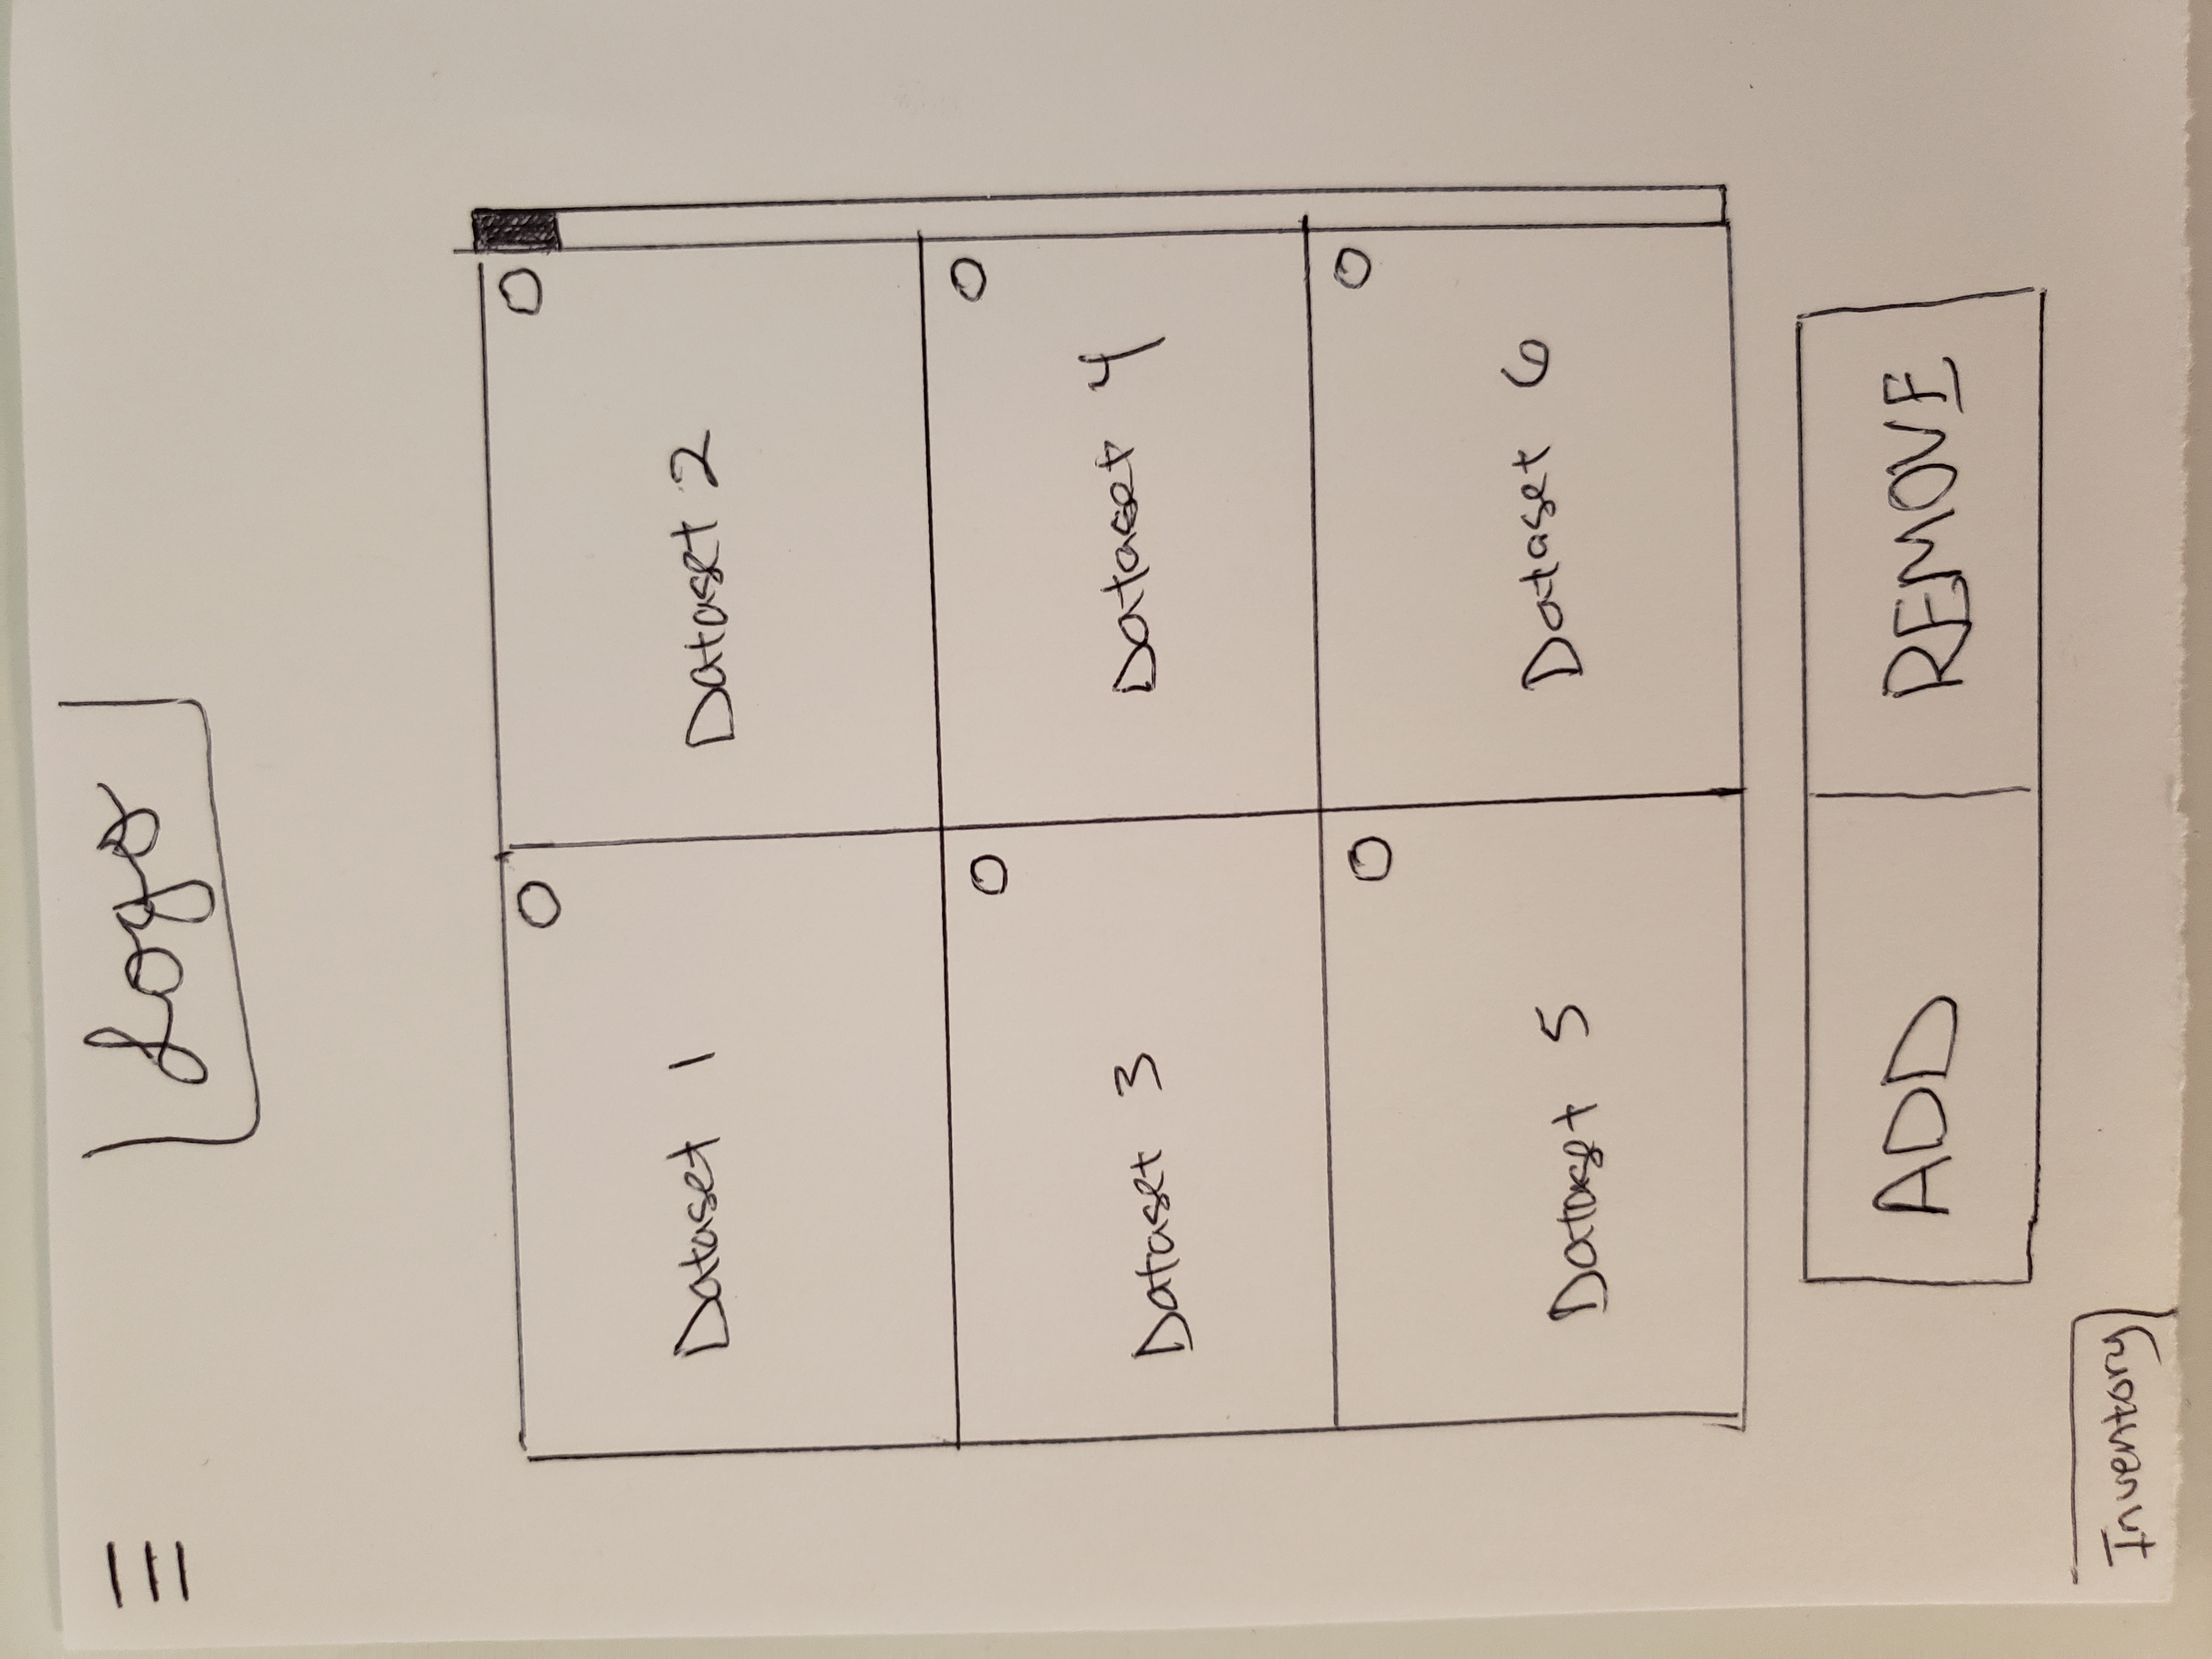 Logo
Dataset 1
Dataset 2
Dataset 3
Dataset 4
Dataset 5
Dataset 6
ADD
REMOVE
Inventory